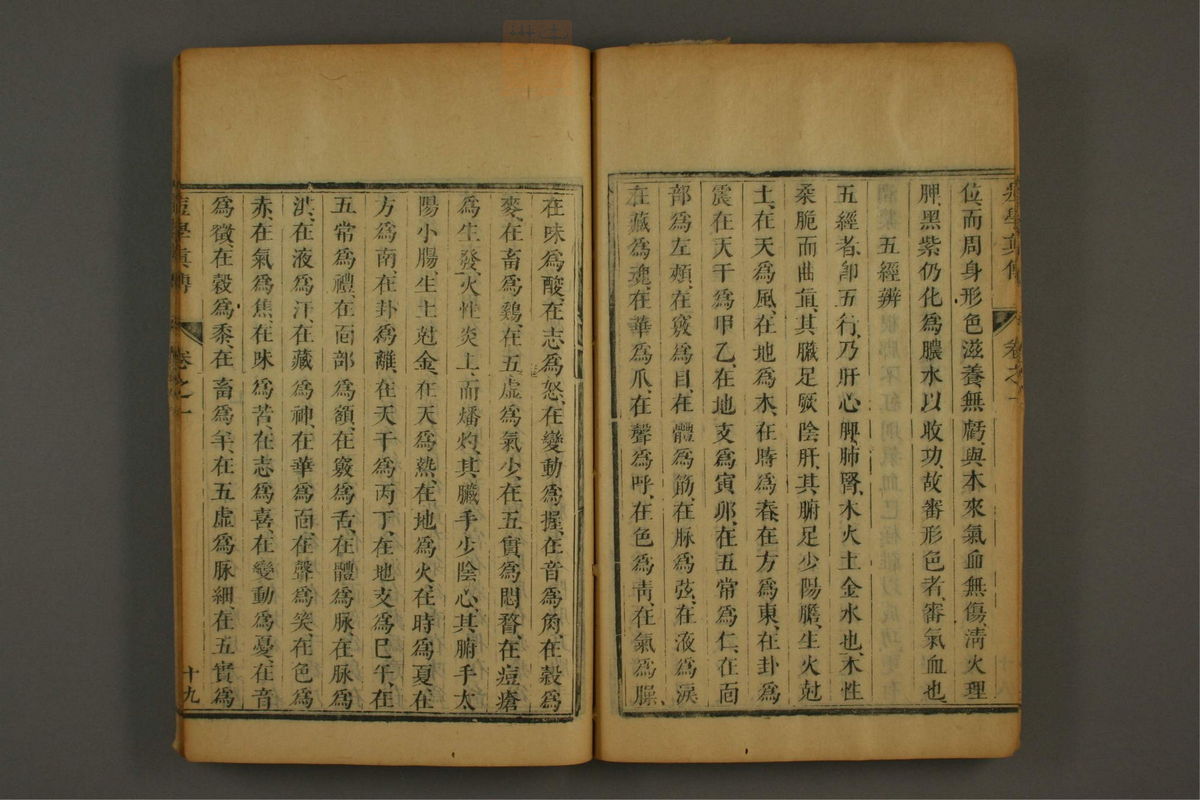 位、而周身形色滋養無虧、與本來氣血無傷、清火理
脾、黑紫仍化爲膿水以收功、故審形色者、審氣血也、
五經辨
五經者、卽五行、乃肝心脾肺腎、木火土金水也、木性
柔脆而曲直、其臟足厥陰肝、其腑足少陽膽、生火尅
土、在天爲風、在地爲木、在時爲春、在方爲東、在卦爲
震、在天干爲甲乙、在地支爲寅卯、在五常爲仁、在面
部爲左頰、在竅爲目、在體爲筋、在脉爲弦、在液爲淚、
在藏爲魂、在華爲爪、在聲爲呼、在色爲靑、在氣爲臊、
在味爲酸、在志爲怒、在變動爲握、在音爲角、在穀爲
麥、在畜爲鷄、在五虛爲氣少、在五實爲悶瞀、在痘瘡
爲生發、火性炎上、而燔灼、其臟手少陰心、其腑手太
陽小腸、生土尅金、在天爲熱、在地爲火、在時爲夏、在
方爲南、在卦爲離、在天干爲丙丁、在地支爲巳午、在
五常爲禮、在面部爲額、在竅爲舌、在體爲脉、在脉爲
洪、在液爲汗、在藏爲神、在華爲面、在聲爲笑、在色爲
赤、在氣爲焦、在味爲苦、在志爲喜、在變動爲憂、在音
爲徵、在穀爲黍、在畜爲羊、在五虛爲脉細、在五實爲
痘學眞傳 卷之一 十九